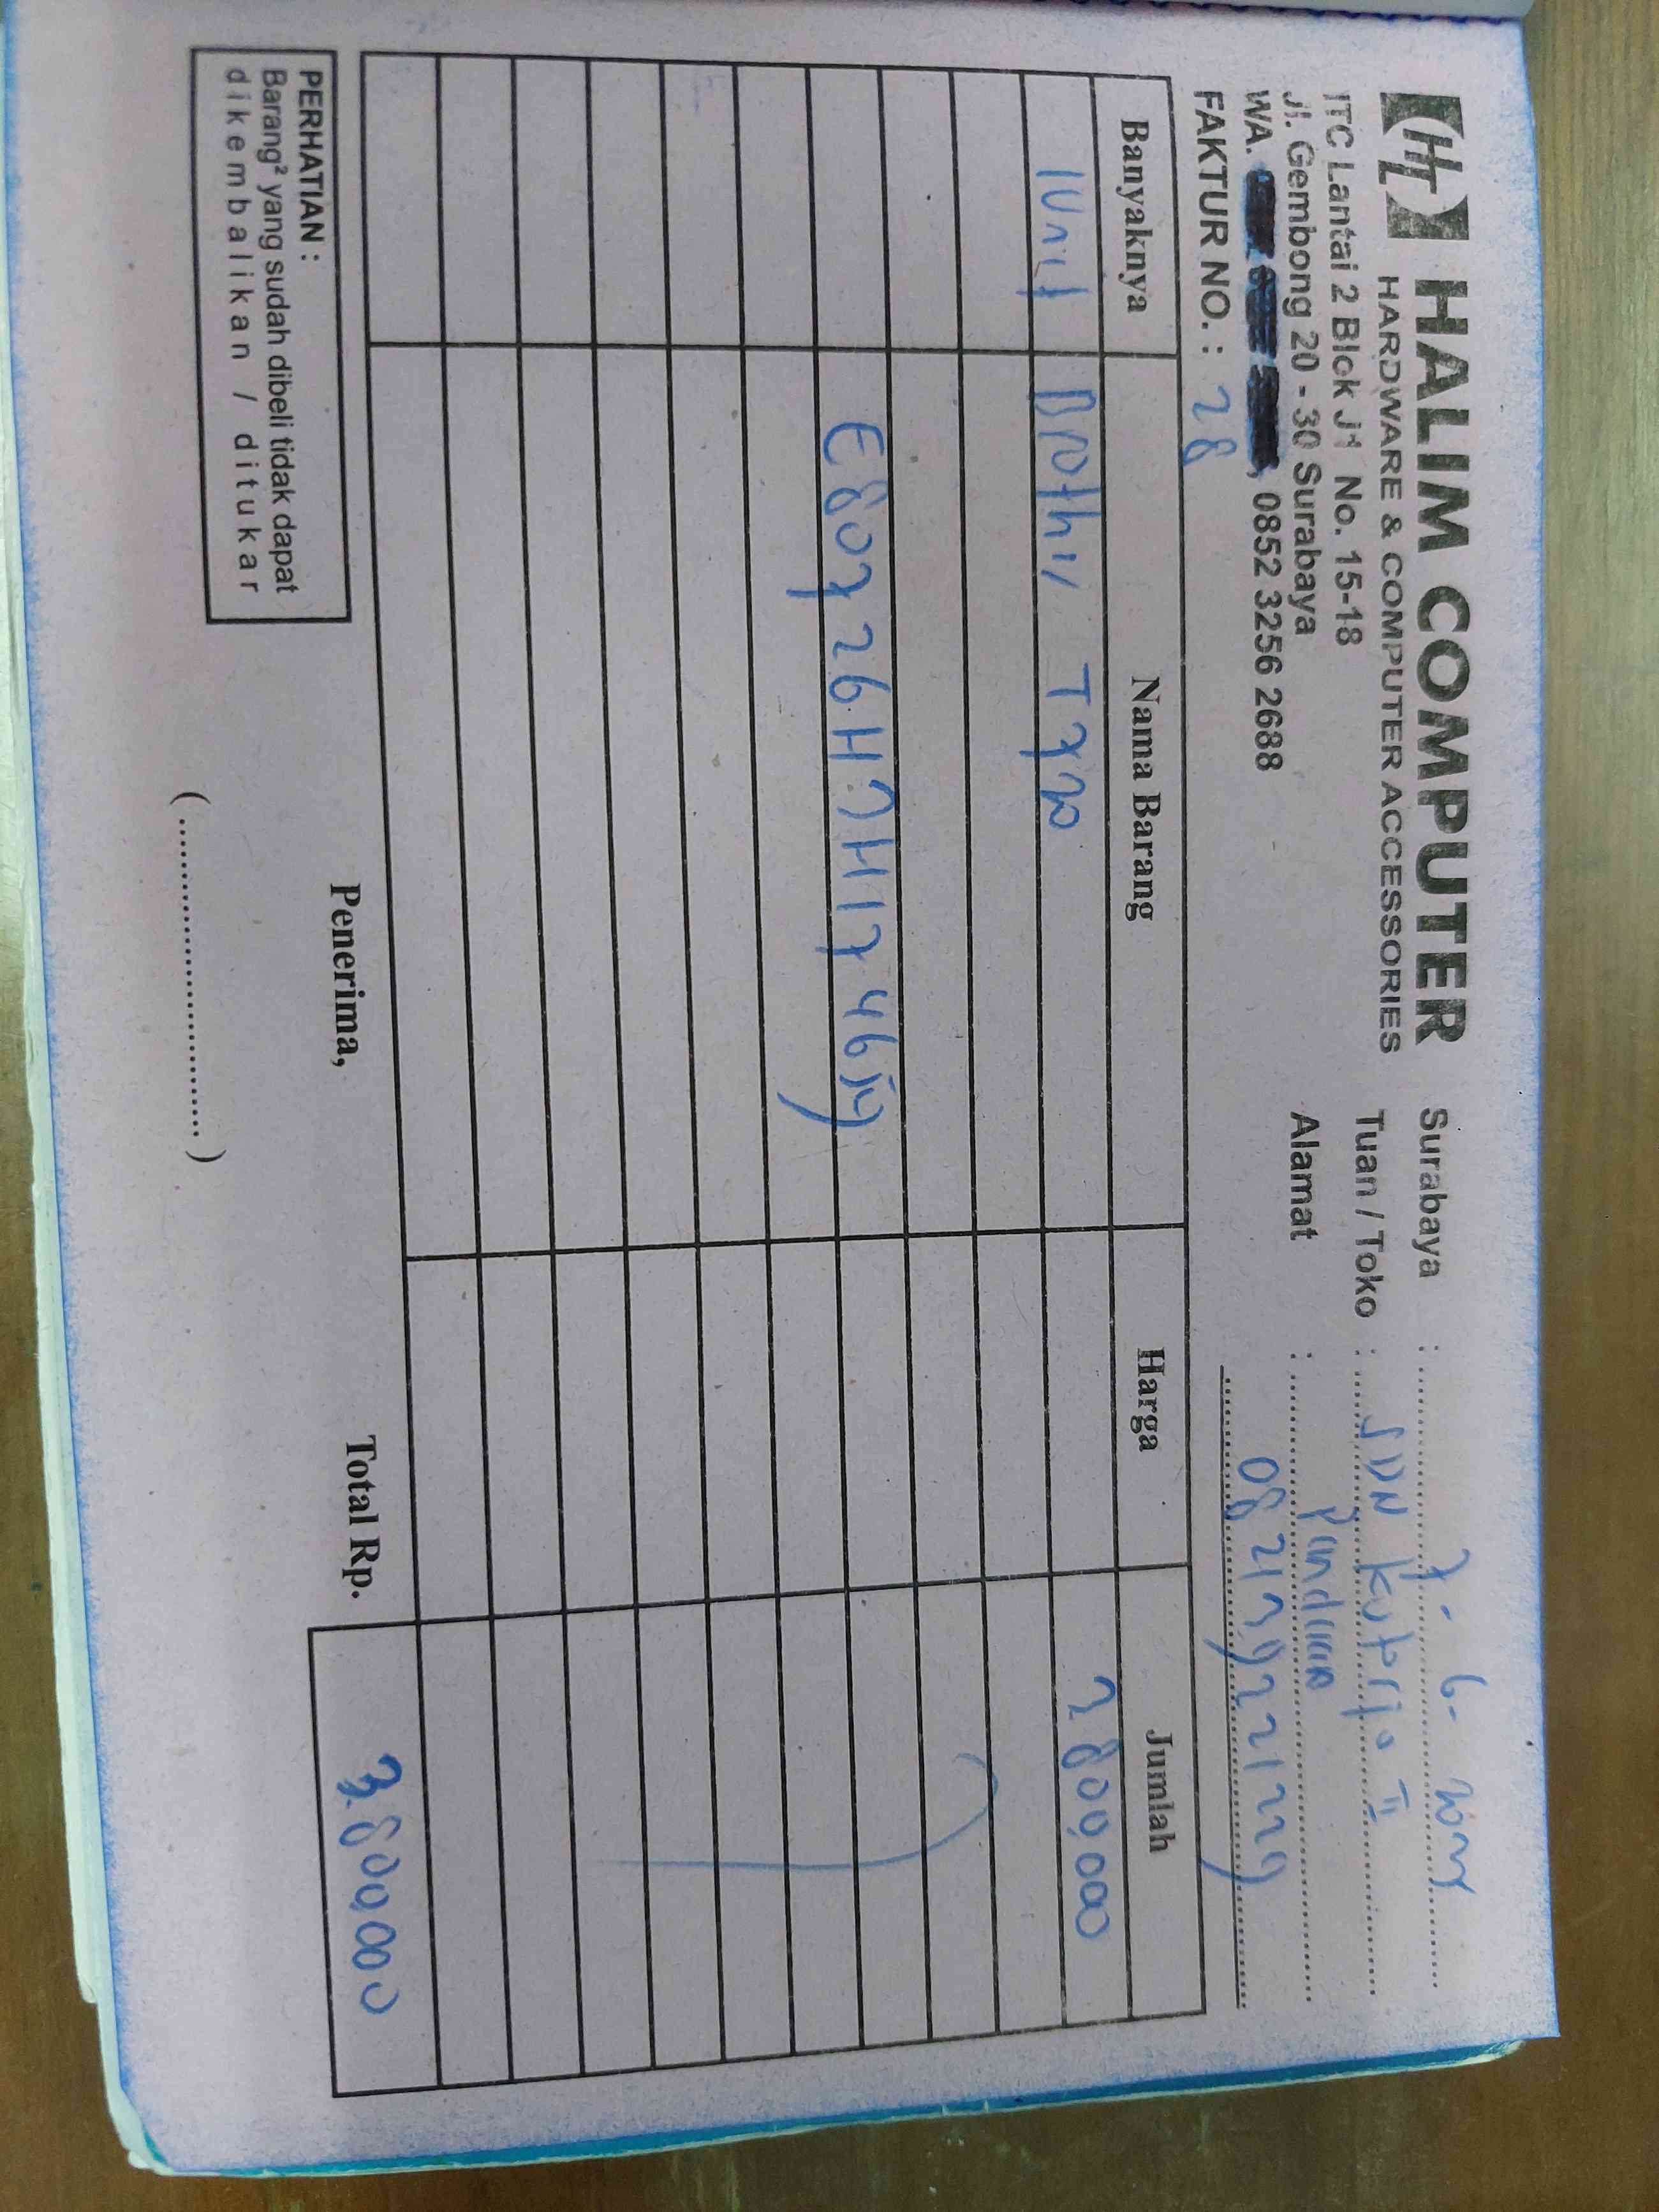 HT HALIM COMPUTER
HARDWARE & COMPUTER ACCESSORIES
ITC Lantai 2 Blok J1 No. 15-18
Jl. Gembong 20 - 30 Surabaya
WA. 0852 3256 2688
FAKTUR NO. : 28
Surabaya :
Tuan / Toko : SDN Kutorejo II
Alamat : Pandaan
Banyaknya Nama Barang Harga Jumlah
1 Unit T720 2.800.000
PERHATIAN :
Barang² yang sudah dibeli tidak dapat
dikembalikan / ditukar
Penerima,
(........................)
Total Rp.